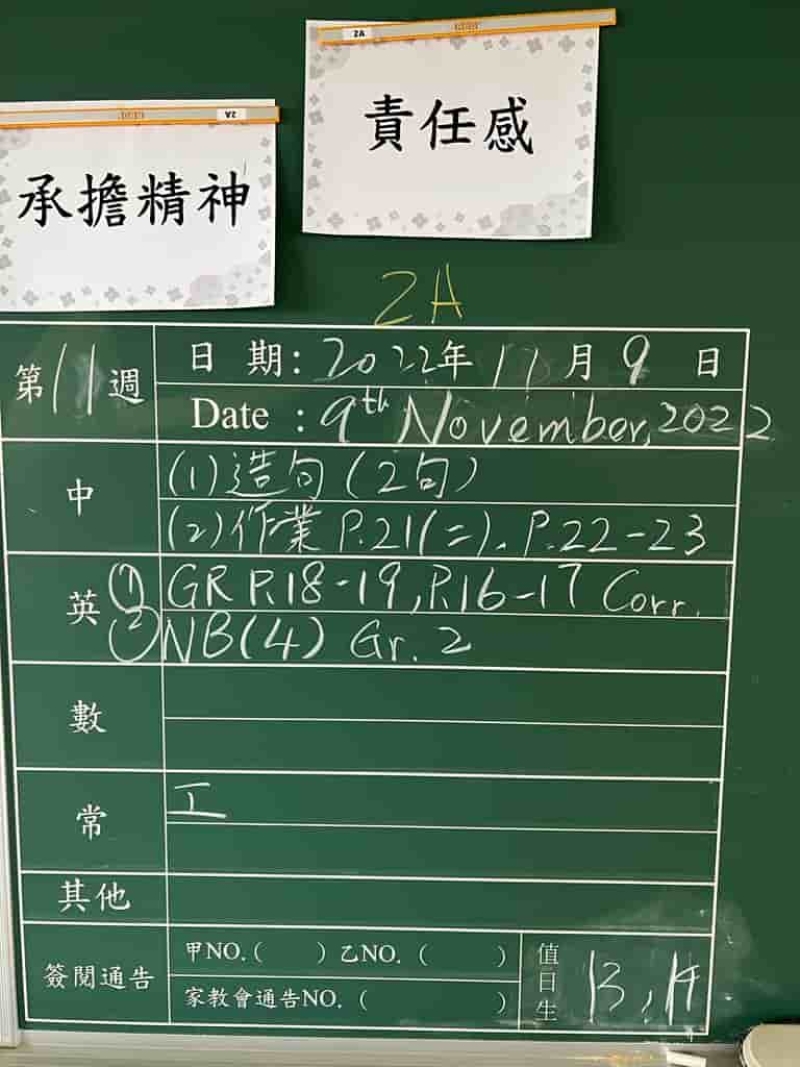 2A
責任感
V2
承擔精神
2A
第11週
日 期：2022年11月9日
Date : 9th November, 2022
中
(1)造句(2句)
(2)作業 P.21(二), P.22-23
英
① GR P.18-19, P.16-17 Corr.
② NB(4) Gr. 2
數
常
工
其他
簽閱通告
甲NO.(    )乙NO.(    )
家教會通告NO.(    )
值日生
13, 14